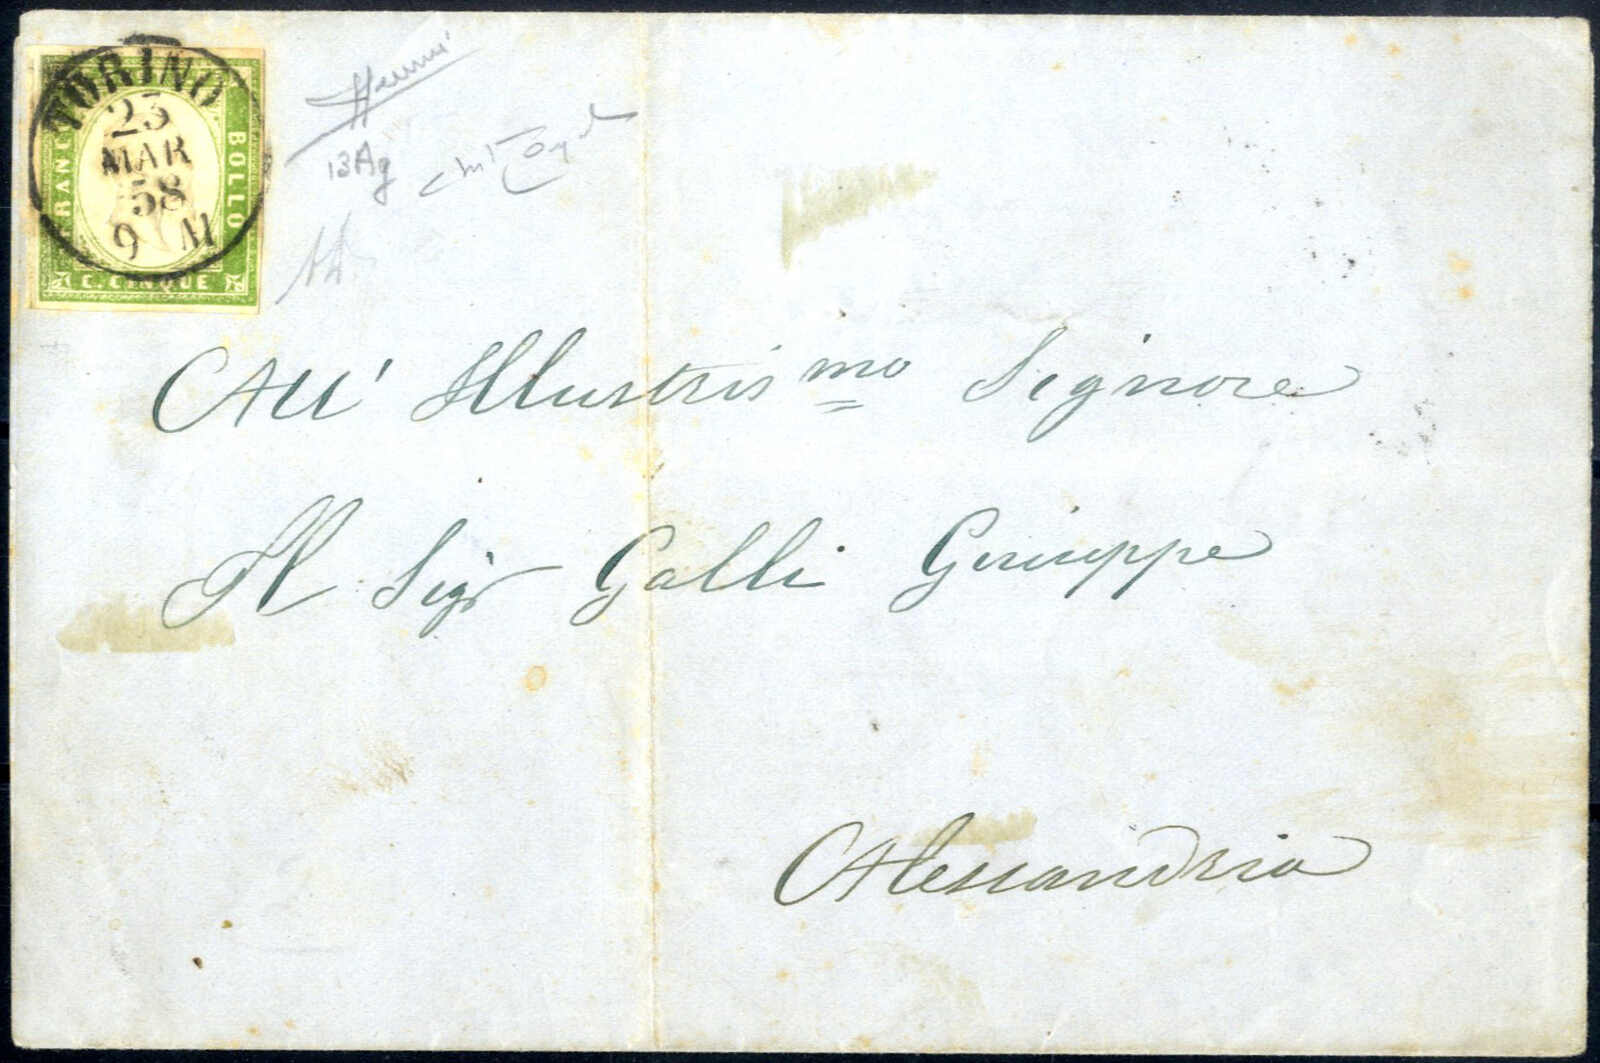 TORINO
23
MAR
58
9 M
FRANCO
BOLLO
C. CINQUE
13Ag
All' Illustris mo Signore
Il Sigr Galli Giuseppe
Alessandria